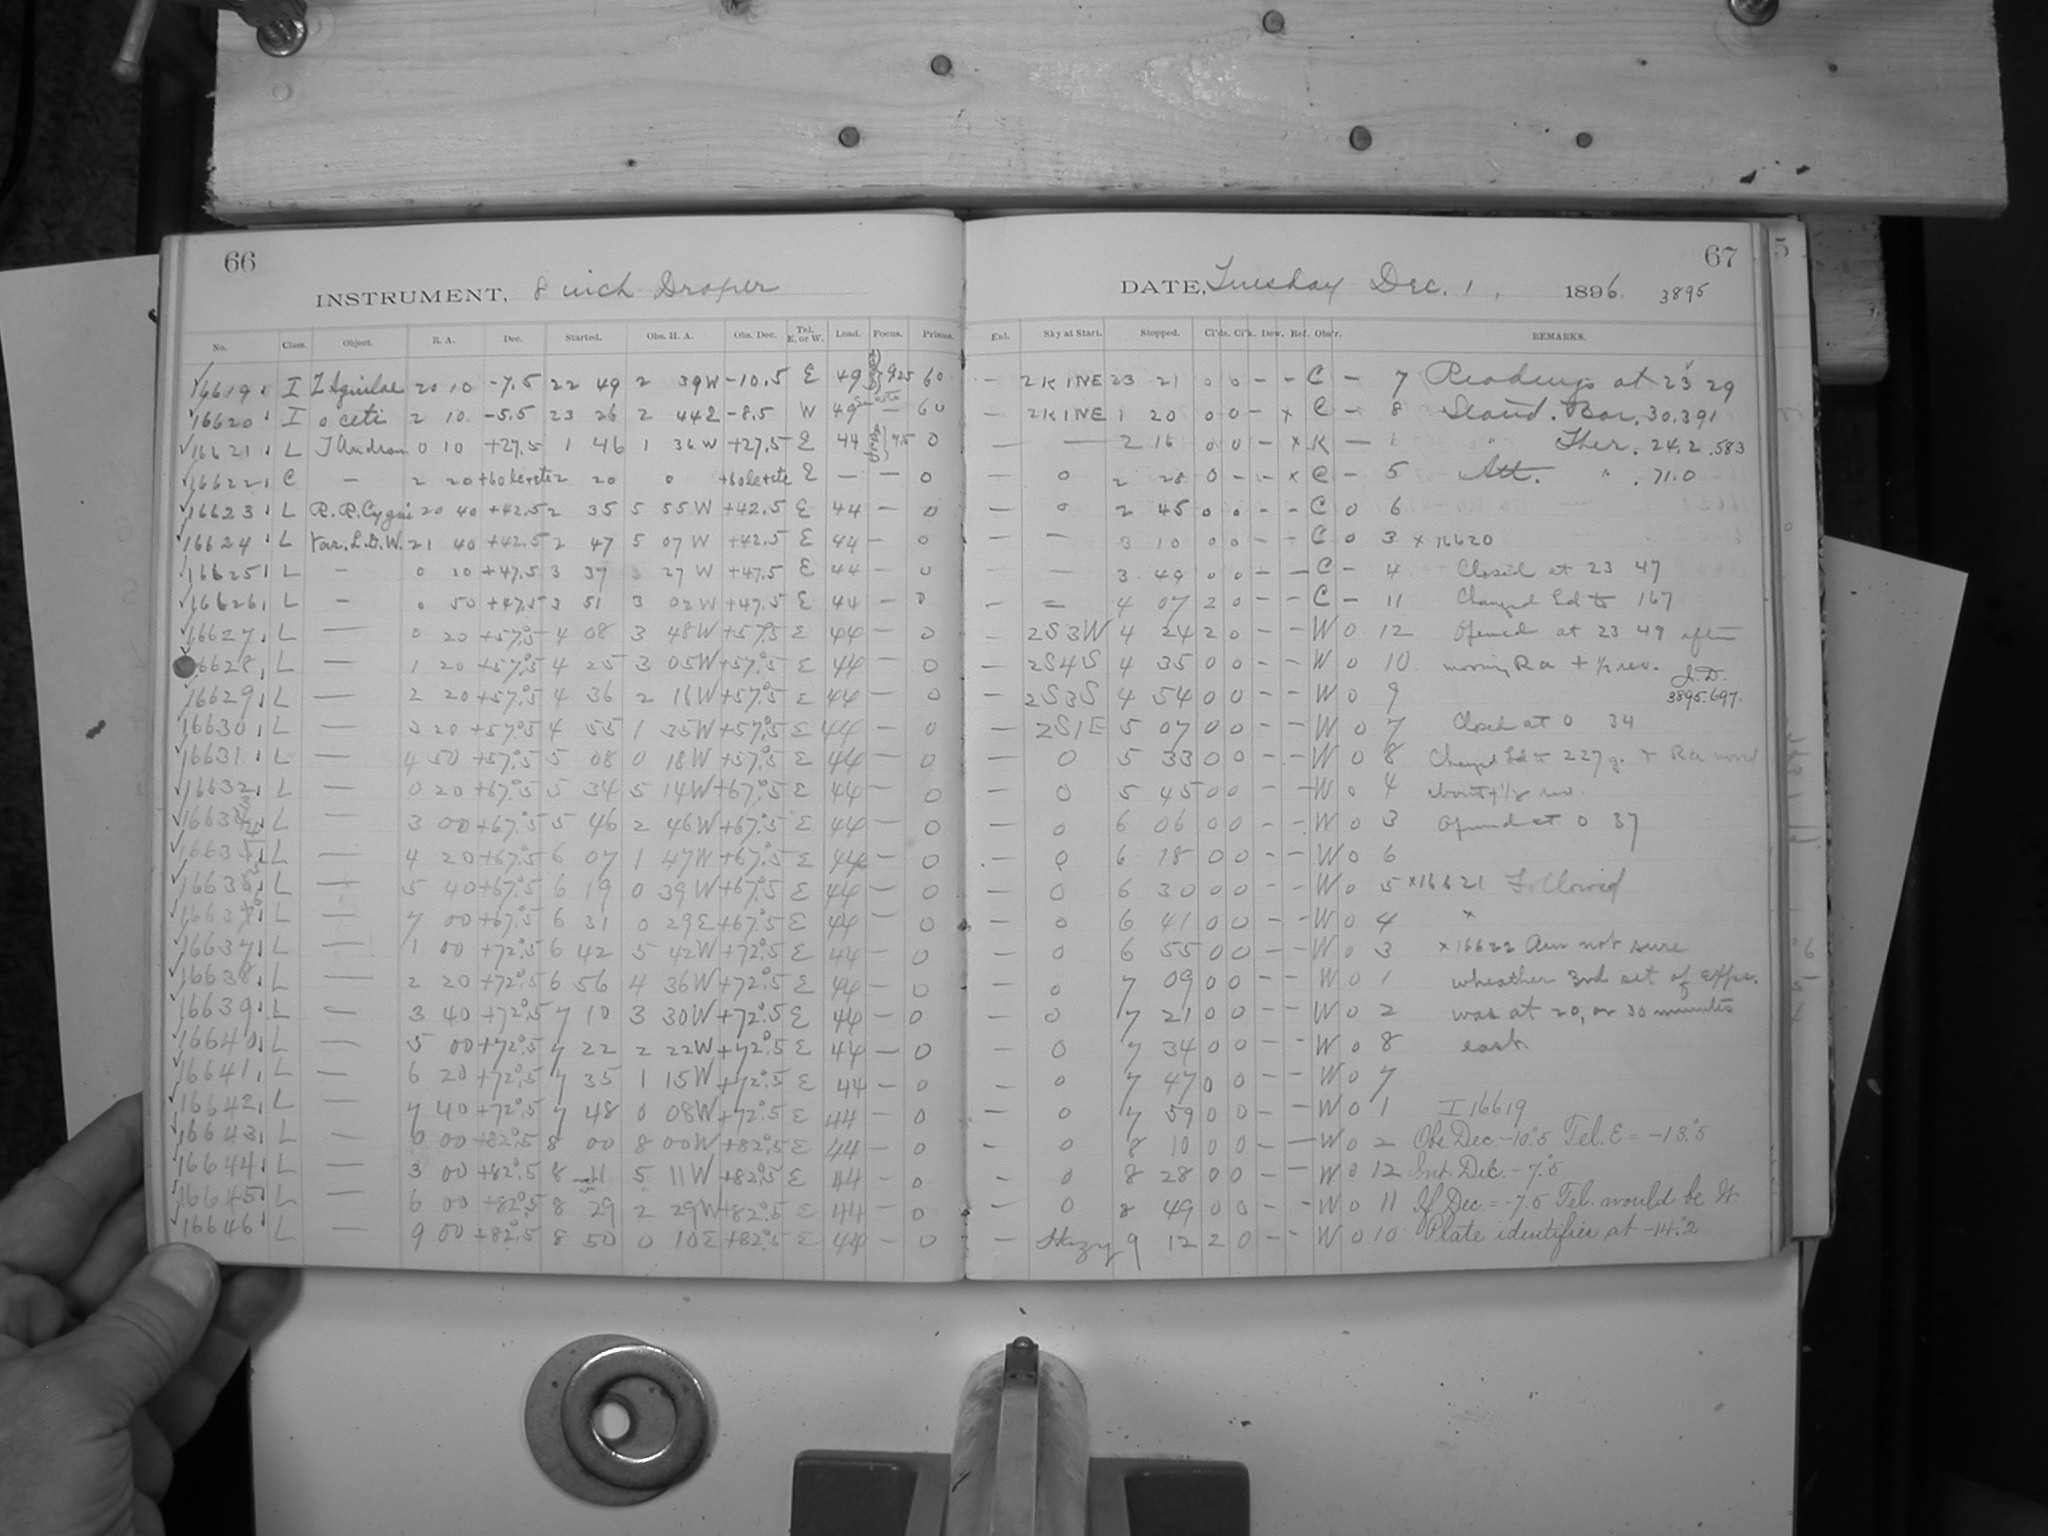 66
INSTRUMENT, 8 inch Draper
No. Class. Object. R. A. Dec. Started. Obs. H. A. Obs. Dec. Tel. E. or W. Load. Focus. Prisms.
16619 I Z Aquilae 20 10 -7.5 22 49 2 39W -10.5 E 49 925 60
16620 I o ceti 2 10 -5.5 23 26 2 44E -8.5 W 49 — 60
16621 L T Androm 0 10 +27.5 1 46 1 36W +27.5 E 44 0
16622 C — 2 20 2 20 0 E — — 0
16623 L R.R. Cygni 20 40 +42.5 2 35 5 55W +42.5 E 44 — 0
16624 L Var. L.D.W. 21 40 +42.5 2 47 5 07W +42.5 E 44 — 0
16625 L — 0 10 +47.5 3 37 3 27W +47.5 E 44 — 0
16626 L — 0 50 +47.5 3 51 3 02W +47.5 E 44 — 0
16627 L — 0 20 +57.5 4 08 3 48W +57.5 E 44 — 0
16628 L — 1 20 +57.5 4 25 3 05W +57.5 E 44 — 0
16629 L — 2 20 +57.5 4 36 2 16W +57.5 E 44 — 0
16630 L — 3 20 +57.5 4 55 1 35W +57.5 E 44 — 0
16631 L — 4 50 +57.5 5 08 0 18W +57.5 E 44 — 0
16632 L — 0 20 +67.5 5 34 5 14W +67.5 E 44 — 0
L — 3 00 +67.5 5 46 2 46W +67.5 E 44 — 0
L — 4 20 +67.5 6 07 1 47W +67.5 E 44 — 0
L — 5 40 +67.5 6 19 0 39W +67.5 E 44 — 0
L — 7 00 +67.5 6 31 0 29E +67.5 E 44 — 0
16637 L — 1 00 +72.5 6 42 5 42W +72.5 E 44 — 0
16638 L — 2 20 +72.5 6 56 4 36W +72.5 E 44 — 0
16639 L — 3 40 +72.5 7 10 3 30W +72.5 E 44 — 0
16640 L — 5 00 +72.5 7 22 2 22W +72.5 E 44 — 0
16641 L — 6 20 +72.5 7 35 1 15W +72.5 E 44 — 0
16642 L — 7 40 +72.5 7 48 0 08W +72.5 E 44 — 0
16643 L — 0 00 +82.5 8 00 8 00W +82.5 E 44 — 0
16644 L — 3 00 +82.5 8 11 5 11W +82.5 E 44 — 0
16645 L — 6 00 +82.5 8 29 2 29W +82.5 E 44 — 0
16646 L — 9 00 +82.5 8 50 0 10E +82.5 E 44 — 0
67
DATE, Tuesday Dec. 1, 1896. 3895
Enl. Sky at Start. Stopped. Cl'ds. Cl'k. Dew. Ref. Obs'r. REMARKS.
— 2K1NE 23 21 0 0 — — C — 7 Readings at 23 29
— 2K1NE 1 20 0 0 — x C — 8 Stand. Bar. 30.391
— — 2 16 0 0 — x K — 1 " Ther. 24.2 .583
— 0 2 28 0 — — x C — 5 Att. " . 71.0
— 0 2 45 0 0 — — C 0 6
— — 3 10 0 0 — — C 0 3 x 16620
— — 3 49 0 0 — — C — 4 Closed at 23 47
— — 4 07 2 0 — — C — 11 Changed Ld to 167
— 2S3W 4 24 2 0 — — W 0 12 Opened at 23 49 after
— 2S4S 4 35 0 0 — — W 0 10 moving Ra + ½ rev. J.D.
— 2S3S 4 54 0 0 — — W 0 9 3895.697.
— 2S1E 5 07 0 0 — — W 0 7 Closed at 0 34
— 0 5 33 0 0 — — W 0 8 Changed Ld to 227 g. + Ra moved
— 0 5 45 0 0 — — W 0 4 about rev.
— 0 6 06 0 0 — — W 0 3 Opened at 0 37
— 0 6 18 0 0 — — W 0 6
— 0 6 30 0 0 — — W 0 5 x 16621 Followed
— 0 6 41 0 0 — — W 0 4 x
— 0 6 55 0 0 — — W 0 3 x 16622 Am not sure
— 0 7 09 0 0 — — W 0 1 wheather 3rd set of exps.
— 0 7 21 0 0 — — W 0 2 was at 20, or 30 minutes
— 0 7 34 0 0 — — W 0 8 east.
— 0 7 47 0 0 — — W 0 7
— 0 7 59 0 0 — — W 0 1 I 16619
— 0 8 10 0 0 — — W 0 2 Obs. Dec -10.5 Tel. E = -13.5
— 0 8 28 0 0 — — W 0 12 Int. Dec. -7.5
— 0 8 49 0 0 — — W 0 11 If Dec. = -7.5 Tel. would be W
— Hazy 9 12 2 0 — — W 0 10 Plate identifier at -14.2